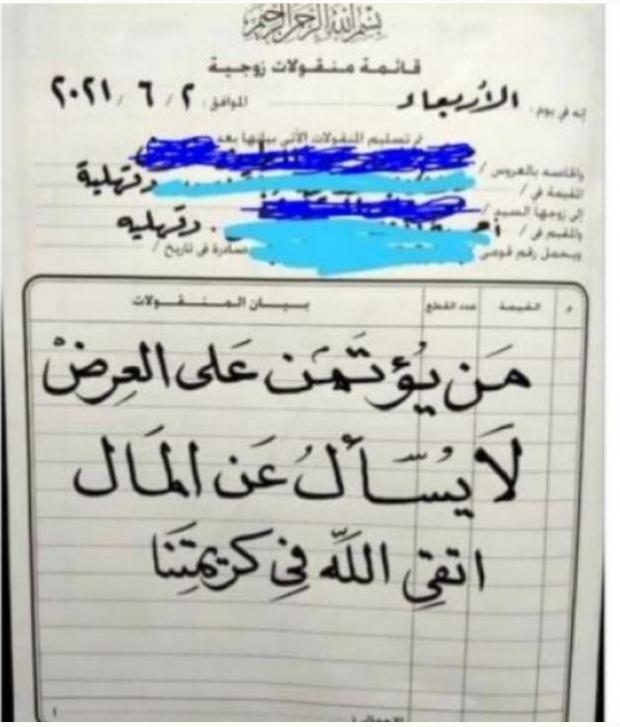 بسم الله الرحمن الرحيم
قائمة منقولات زوجية
إنه في يوم: الأربعاء الموافق: ٢ / ٦ / ٢٠٢١
تم تسليم المنقولات الآتي بيانها بعد
والخاصه بالعروس /
المقيمة في / دقهلية
إلى زوجها السيد /
والمقيم في / دقهليه
ويحمل رقم قومى صادرة في تاريخ /
م القيمة عدد القطع بيـــان المـنـقــولات
مَن يُؤتَمَن عَلى العِرضْ
لَا يُسّأَلُ عَن المَال
اتقِي اللَّه فِي كَريمَتِنَا